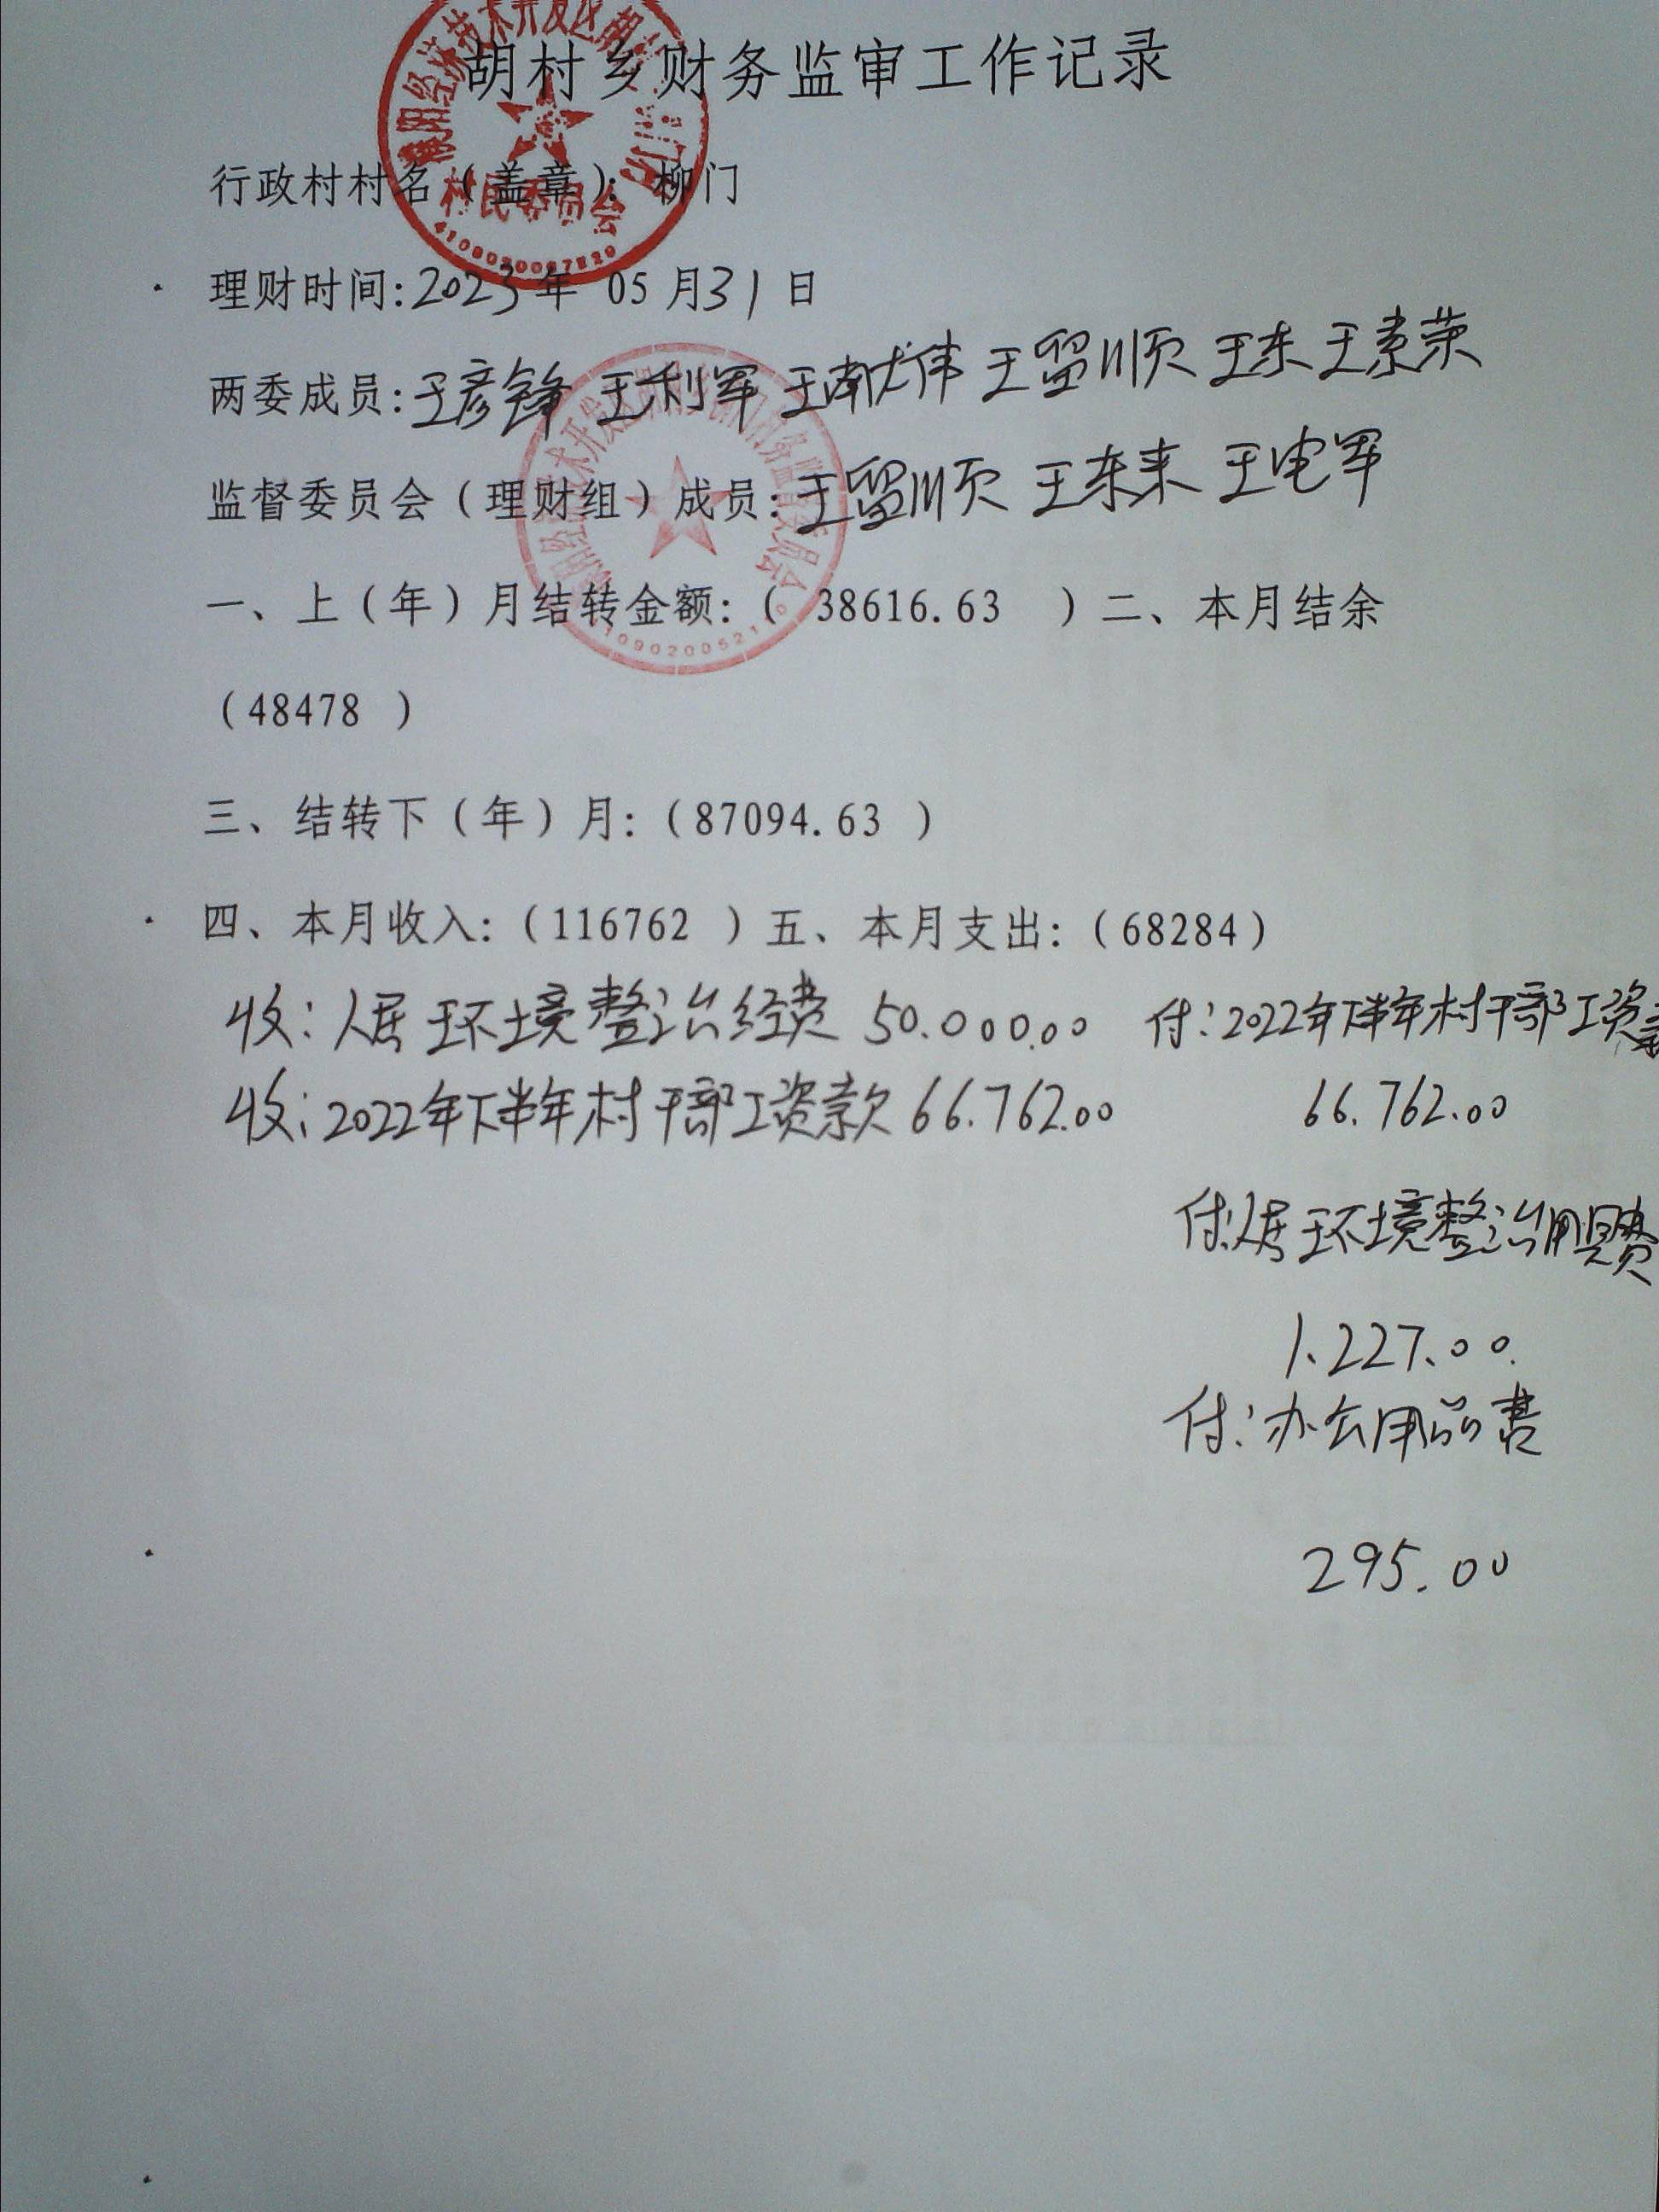 胡村乡财务监审工作记录
行政村村名（盖章）：柳门
村民委员会
理财时间:2023年 05月31日
两委成员:王彦锋 王利军 王献伟 王留顺 王东 王素荣
监督委员会（理财组）成员:王留顺 王东来 王电军
一、上（年）月结转金额:（ 38616.63 ）二、本月结余
（48478 ）
三、结转下（年）月:（87094.63 ）
四、本月收入:（116762 ）五、本月支出:（68284）
收:人居环境整治经费 50.000.00 付:2022年下半年村干部工资款
收:2022年下半年村干部工资款 66.762.00 66.762.00
付:人居环境整治用具费
1.227.00.
付:办公用品费
295.00